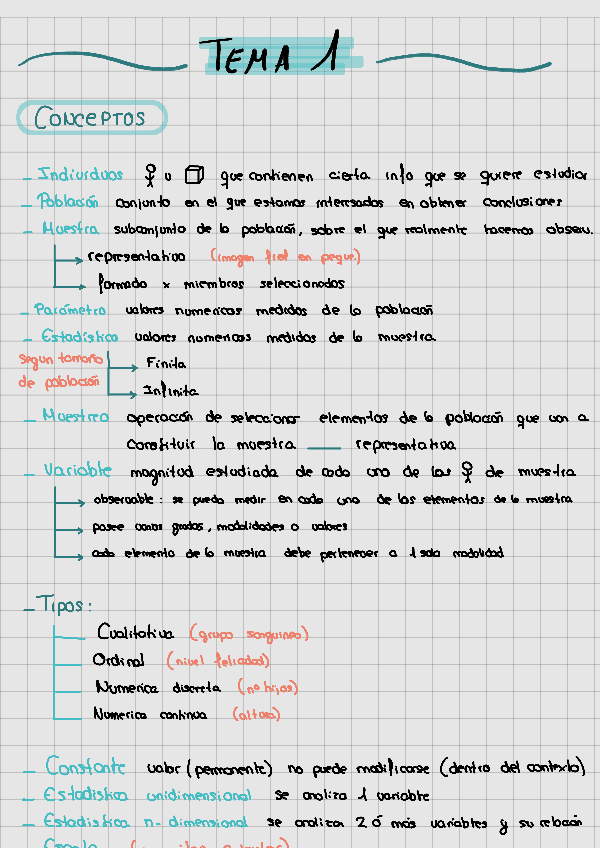 TEMA 1
CONCEPTOS
_ Individuos u que contienen cierta info que se quiere estudiar
_ Población conjunto en el que estamos interesados en obtener conclusiones
_ Muestra subconjunto de la población, sobre el que realmente hacemos observ.
representativa (imagen fiel en peque.)
formada x miembros seleccionados
_ Parámetro valores numericos medidos de la población
_ Estadístico valores numericos medidos de la muestra
Segun tamaño
de población
Finita
Infinita
_ Muestreo operación de seleccionar elementos de la población que van a
constituir la muestra — representativa
_ Variable magnitud estudiada de cada uno de las de muestra
observable: se puede medir en cada uno de los elementos de la muestra
posee varios grados, modalidades o valores
cada elemento de la muestra debe pertenecer a 1 sola modalidad
_ Tipos:
Cualitativa (grupo sanguineo)
Ordinal (nivel felicidad)
Numerica discreta (nº hijos)
Numerica continua (altura)
_ Constante valor (permanente) no puede modificarse (dentro del contexto)
_ Estadistica unidimensional se analiza 1 variable
_ Estadistica n-dimensional se analizan 2 ó más variables y su relación